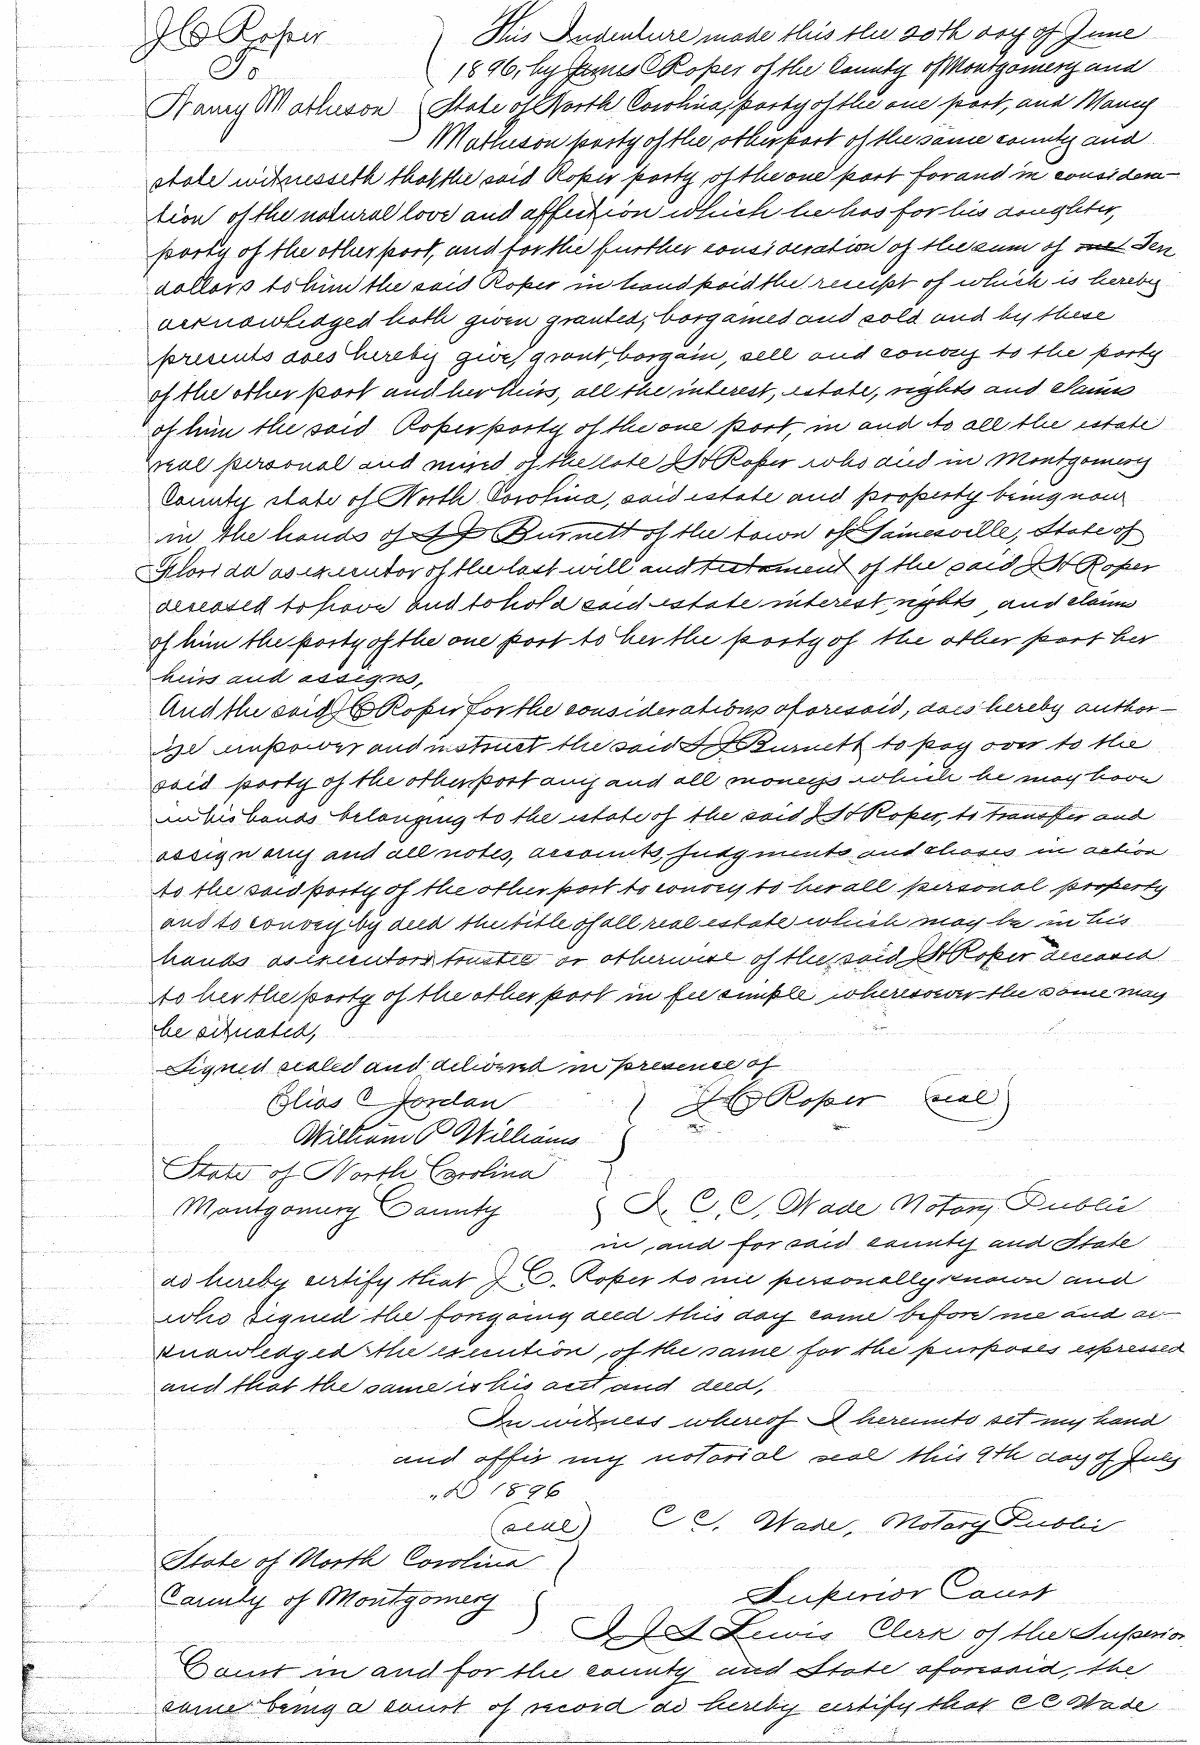 J C Roper
To
Nancy Matheson
This Indenture made this the 20th day of June
1896, by James C Roper of the County of Montgomery and
State of North Carolina, party of the one part, and Nancy
Matheson party of the other part of the same county and
state witnesseth that the said Roper party of the one part for and in considera-
tion of the natural love and affection which he has for his daughter,
party of the other part, and for the further consideration of the sum of one Ten
dollars to him the said Roper in hand paid the receipt of which is hereby
acknowledged hath given granted, bargained and sold and by these
presents does hereby give, grant, bargain, sell and convey to the party
of the other part and her heirs, all the interest, estate, rights and claims
of him the said Roper party of the one part, in and to all the estate
real personal and mixed of the late J H Roper who died in Montgomery
County state of North Carolina, said estate and property being now
in the hands of Burnett of the town of Gainesville, State of
Florida as executor of the last will and testament of the said J H Roper
deceased to have and to hold said estate interest, rights, and claims
of him the party of the one part to her the party of the other part her
heirs and assigns,
And the said J C Roper for the considerations aforesaid, does hereby author-
ize empower and instruct the said Burnett to pay over to the
said party of the other part any and all moneys which he may have
in his hands belonging to the estate of the said J H Roper, to transfer and
assign any and all notes, accounts, judgments and choses in action
to the said party of the other part to convey to her all personal property
and to convey by deed the title of all real estate which may be in his
hands as executor trustee or otherwise of the said J H Roper deceased
to her the party of the other part in fee simple wheresoever the same may
be situated,
Signed sealed and delivered in presence of
Elias C Jordan J C Roper (seal)
William P Williams
State of North Carolina
Montgomery County I, C, C, Wade Notary Public
in and for said county and State
do hereby certify that J C. Roper to me personally known and
who signed the foregoing deed this day came before me and ac-
knowledged the execution, of the same for the purposes expressed
and that the same is his act and deed,
In witness whereof I hereunto set my hand
and affix my notarial seal this 9th day of July
D 1896
(seal) C C. Wade, Notary Public
State of North Carolina
County of Montgomery Superior Court
I Lewis Clerk of the Superior
Court in and for the county and State aforesaid, the
same being a court of record do hereby certify that C C Wade